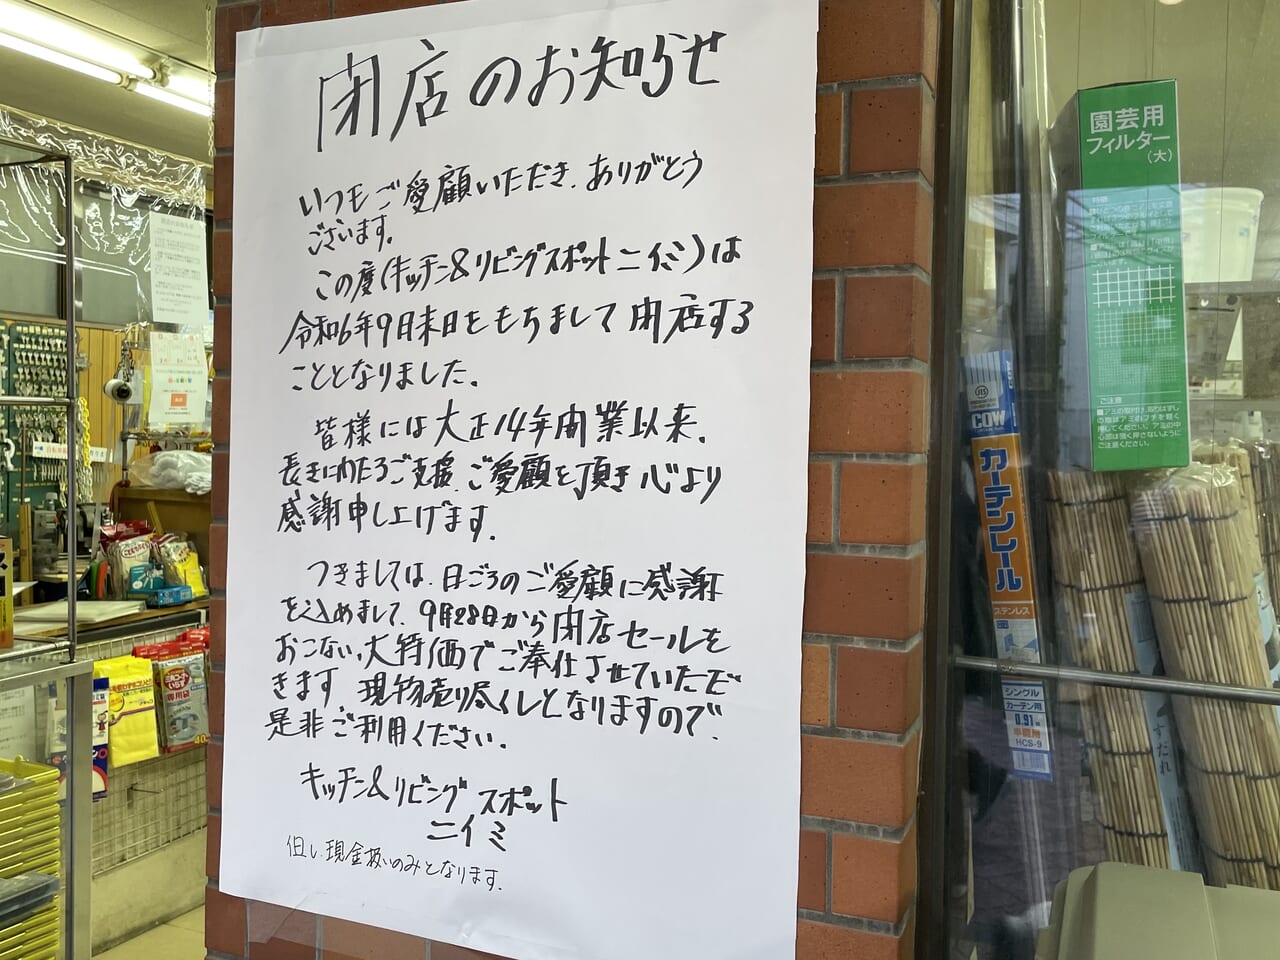 閉店のお知らせ
いつもご愛顧いただき、ありがとう
ございます。
この度(キッチン&リビングスポットニイミ)は
令和6年9月末日をもちまして閉店する
こととなりました。
皆様には大正14年開業以来、
長きにわたるご支援、ご愛顧を頂き心より
感謝申し上げます。
つきましては、日ごろのご愛顧に感謝
を込めまして、9月28日から閉店セールを
おこない、大特価でご奉仕させていただ
きます。現物売り尽くしとなりますので、
是非ご利用ください。
キッチン&リビングスポット
ニイミ
但し、現金扱いのみとなります。
園芸用
フィルター
(大)
特徴
ご注意
JIS
COW
カーテンレール
ステンレス
シングル
カーテン用
0.91m
HCS-9
すだれ
専用袋